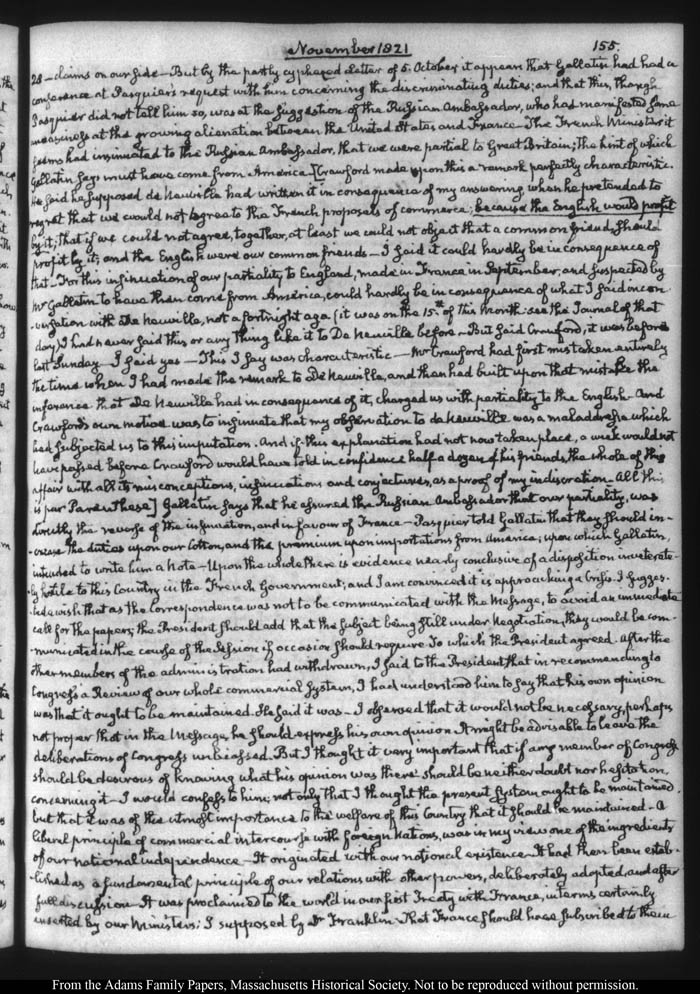 November 1821
155.
28 – claims on our side – But by the partly cyphered letter of 5. October it appears that Gallatin had had a
conference at Pasquier's request with him concerning the discriminating duties; and that this, though
Pasquier did not tell him so, was at the suggestion of the Russian Ambassador, who had manifested some
uneasiness at the growing alienation between the United States and France – The French Minister it
seems had insinuated to the Russian Ambassador, that we were partial to Great Britain; the hint of which
Gallatin says must have come from America [Crawford made upon this a remark perfectly characteristic.
He said he supposed de Neuville had written it in consequence of my answering when he pretended to
regret that we could not agree to the French proposals of commerce; because the English would profit
by it, that if we could not agree, together, at least we could not object that a common friend, should
profit by it; and the English were our common friends – I said it could hardly be in consequence of
that – For this insinuation of our partiality to England, made in France in September, and suspected by
Mr Gallatin to have then come from America, could hardly be in consequence of what I said in con-
-versation with de Neuville, not a fortnight ago (it was on the 15.th of this Month. see the Journal of that
day) I had never said this or any thing like it to De Neuville before – But said Crawford, it was before
last Sunday – I said yes – This I say was characteristic – Mr Crawford had first mistaken entirely
the time when I had made the remark to De Neuville, and then had built upon that mistake the
inference that De Neuville had in consequence of it, charged us with partiality to the English – And
Crawford's own motive was to insinuate that my observation to de Neuville was a maladdresse which
had subjected us to this imputation. And if this explanation had not now taken place, a week would not
have passed before Crawford would have told in confidence half a dozen of his friends the whole of this
affair with all its misconceptions, insinuations and conjectures, as a proof of my indiscretion – All this
is par Parenthese] Gallatin says that he assured the Russian Ambassador that our partiality, was
directly the reverse of the insinuation, and in favour of France – Pasquier told Gallatin that they should in-
-crease the duties upon our Cotton, and the premium upon importations from America; upon which Gallatin,
intended to write him a note – Upon the whole there is evidence nearly conclusive of a disposition inveterate-
-ly hostile to this Country in the French Government; and I am convinced it is approaching a Crisis. I sugges-
-ted a wish that as the Correspondence was not to be communicated with the Message, to avoid an immediate
call for the papers, the President should add that the subject being still under Negotiation, they would be com-
-municated in the course of the Session if occasion should require. To which the President agreed. After the
other members of the administration had withdrawn, I said to the President that in recommending to
Congress a Review of our whole commercial System, I had understood him to say that his own opinion
was that it ought to be maintained. He said it was – I observed that it would not be necessary, perhaps
not proper that in the Message, he should express his own opinion – It might be advisable to leave the
deliberations of Congress unbiassed. But I thought it very important that if any member of Congress
should be desirous of knowing what his opinion was there should be neither doubt nor hesitation,
concerning it – I would confess to him, not only that I thought the present System ought to be maintained.
but that it was of the utmost importance to the welfare of this Country that it should be maintained – A
liberal principle of commercial intercourse with foreign Nations, was in my view one of the ingredients
of our national independence – It originated with our national existence – It had then been estab-
-lished as a fundamental principle of our relations with other powers, deliberately adopted, and after
full discussion – It was proclaimed to the world in our first Treaty with France, in terms certainly
inserted by our Ministers; I supposed by Dr Franklin – That France should have subscribed to them
From the Adams Family Papers, Massachusetts Historical Society. Not to be reproduced without permission.